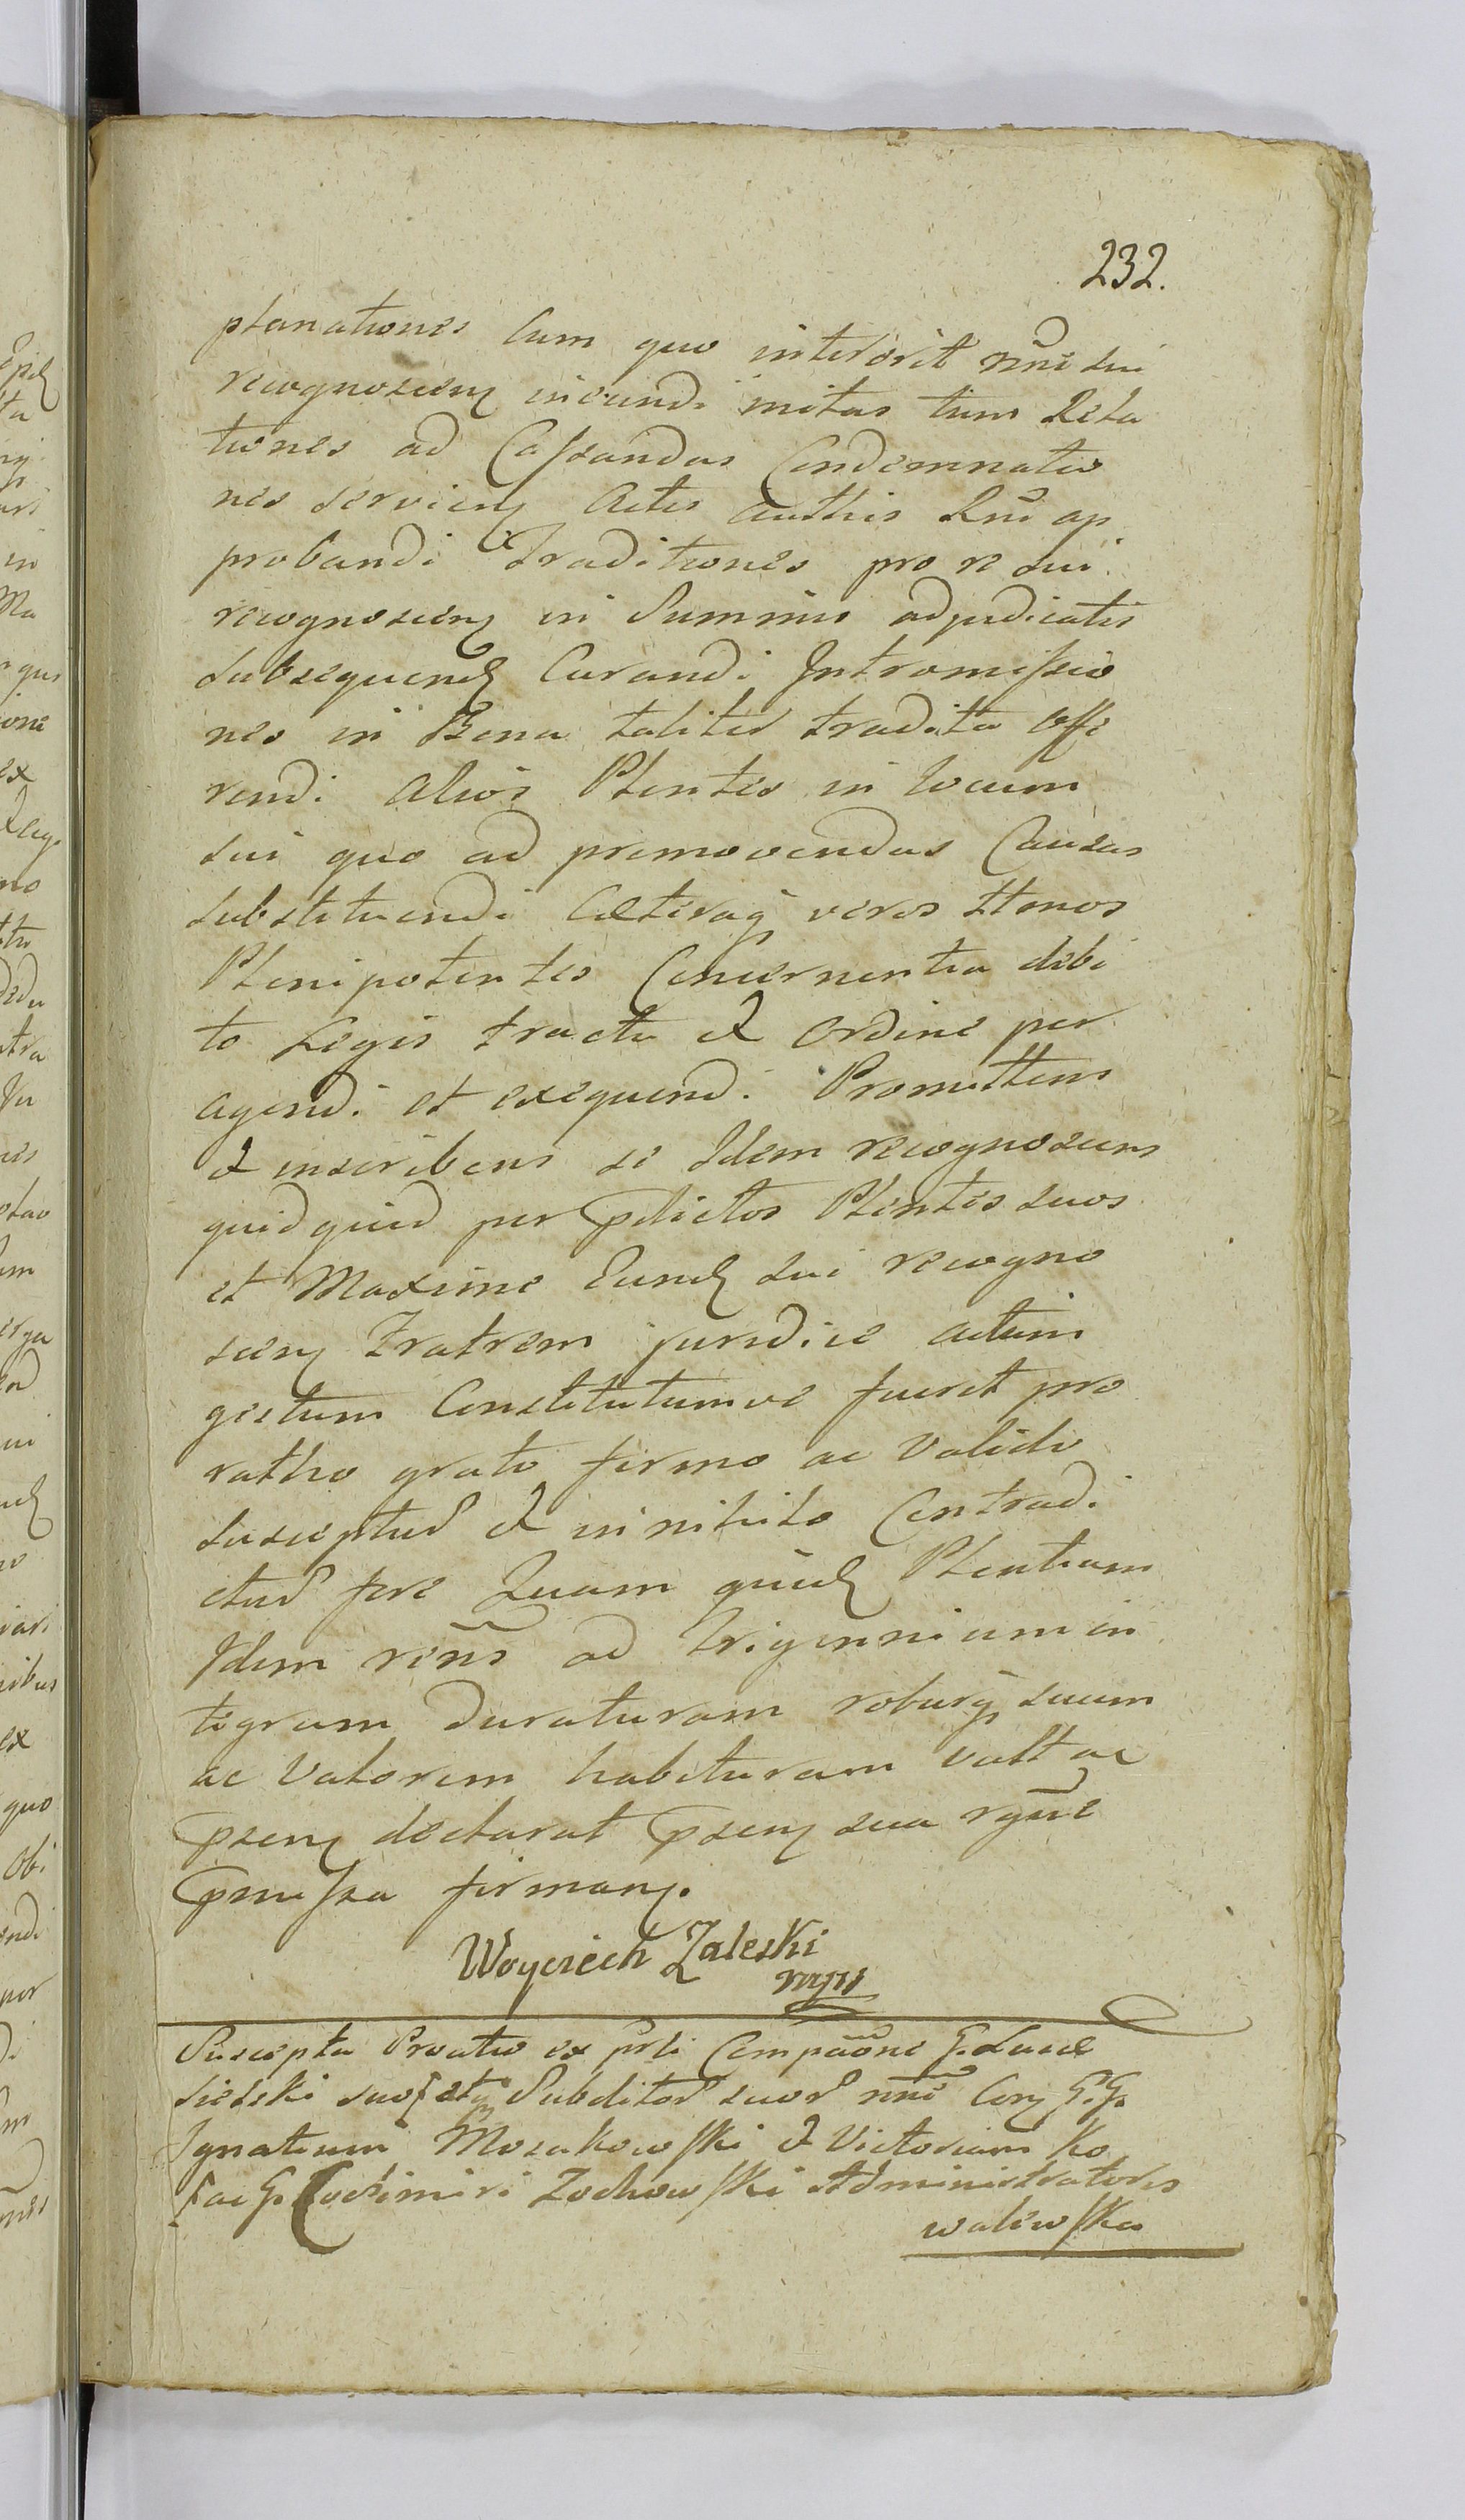 232.
planationes Cum quo intererit nnĩe sui
recognoscenȝ ineundi initas tum Rela
tiones ad Cassandas Condemnatio
nes servienȝ Actis authis Rnĩ ap
probandi Traditiones pro re sui
recognoscenȝ in Summis adjudicatis
subsequend Curandi Intromissio
nes in Bona taliter tradita offe
rendi Alios Plentes in locum
sui quo ad promovendas Causas
substituendi Cæteraq veros Ittmos
Plenipotentes Concernentia debi
to Legis tractu & Ordine per
agendi et exequendi. Promittens
& inscribens se Idem recognoscens
quidquid per pdictos Plentes suos
et Maxime Eund sui recogno
scenȝ Fratrem juridice actum
gestum Constitutumve fuerit pro
ratho grato firmo ac Valido
suscepturꝰ & in nihilo Contradi
cturꝰ fore Quam quid Plentiam
Idem reñs ad trigennium in
tegrum duraturam roburq suum
ac Valorem habituram vult ac
psenȝ declarat psenȝ sua rgñe
pmissa firmanȝ.
Woyciech Zaleski
mpp
Suscepta Protatio ex prti Compaõne G. Luce
sielski suo et Subditorꝰ suorꝰ nnĩe Conȝ G.G.
Ignatium Mosakowski & Victoriam Ko
ac G. Casimiri Zochowski Administratoris
walewska